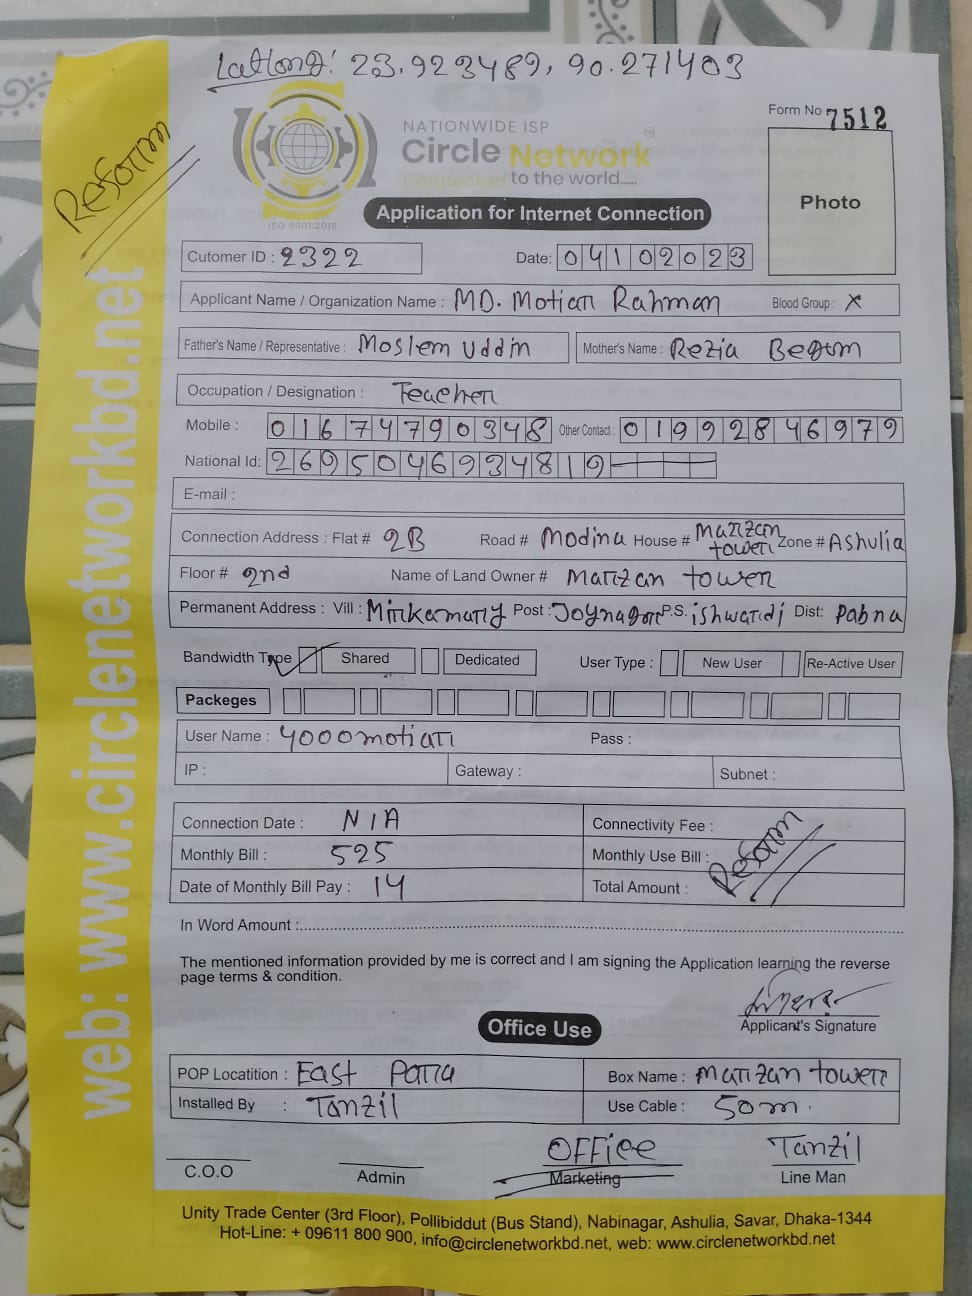 LatLong: 23.923489, 90.271403
Reform
Form No 7512
NATIONWIDE ISP
Circle Network
Connected to the world.....
ISO 9001:2015
Photo
Application for Internet Connection
Cutomer ID : 2322 Date: 04102023
Applicant Name / Organization Name : MD. Motiar Rahman Blood Group : X
Father's Name / Representative : Moslem Uddin Mother's Name : Rezia Begum
Occupation / Designation : Teacher
Mobile : 01674790348 Other Contact : 01992846979
National Id: 2695046934819
E-mail :
Connection Address : Flat # 2B Road # Modina House # Marzan tower Zone # Ashulia
Floor # 2nd Name of Land Owner # Marzan tower
Permanent Address : Vill : Mirkamary Post : Joynagor P.S. ishwardi Dist: Pabna
Bandwidth Type Shared Dedicated User Type : New User Re-Active User
Packeges
User Name : 4000motiar Pass :
IP : Gateway : Subnet :
Connection Date : N/A Connectivity Fee :
Monthly Bill : 525 Monthly Use Bill :
Date of Monthly Bill Pay : 14 Total Amount :
Reform
In Word Amount :
The mentioned information provided by me is correct and I am signing the Application learning the reverse
page terms & condition.
Applicant's Signature
Office Use
POP Locatition : East Para Box Name : Marzan tower
Installed By : Tanzil Use Cable : 50m.
OFFice Tanzil
C.O.O Admin Marketing Line Man
Unity Trade Center (3rd Floor), Pollibiddut (Bus Stand), Nabinagar, Ashulia, Savar, Dhaka-1344
Hot-Line: + 09611 800 900, info@circlenetworkbd.net, web: www.circlenetworkbd.net
web: www.circlenetworkbd.net